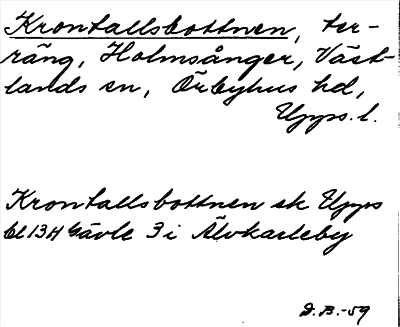 Krontallsbottnen, ter-
räng, Holmsånger, Väst-
lands sn, Örbyhus hd,
Upps. l.
Krontallsbottnen ek Upps
bl 13H Gävle 3 i Älvkarleby
D. B. -59